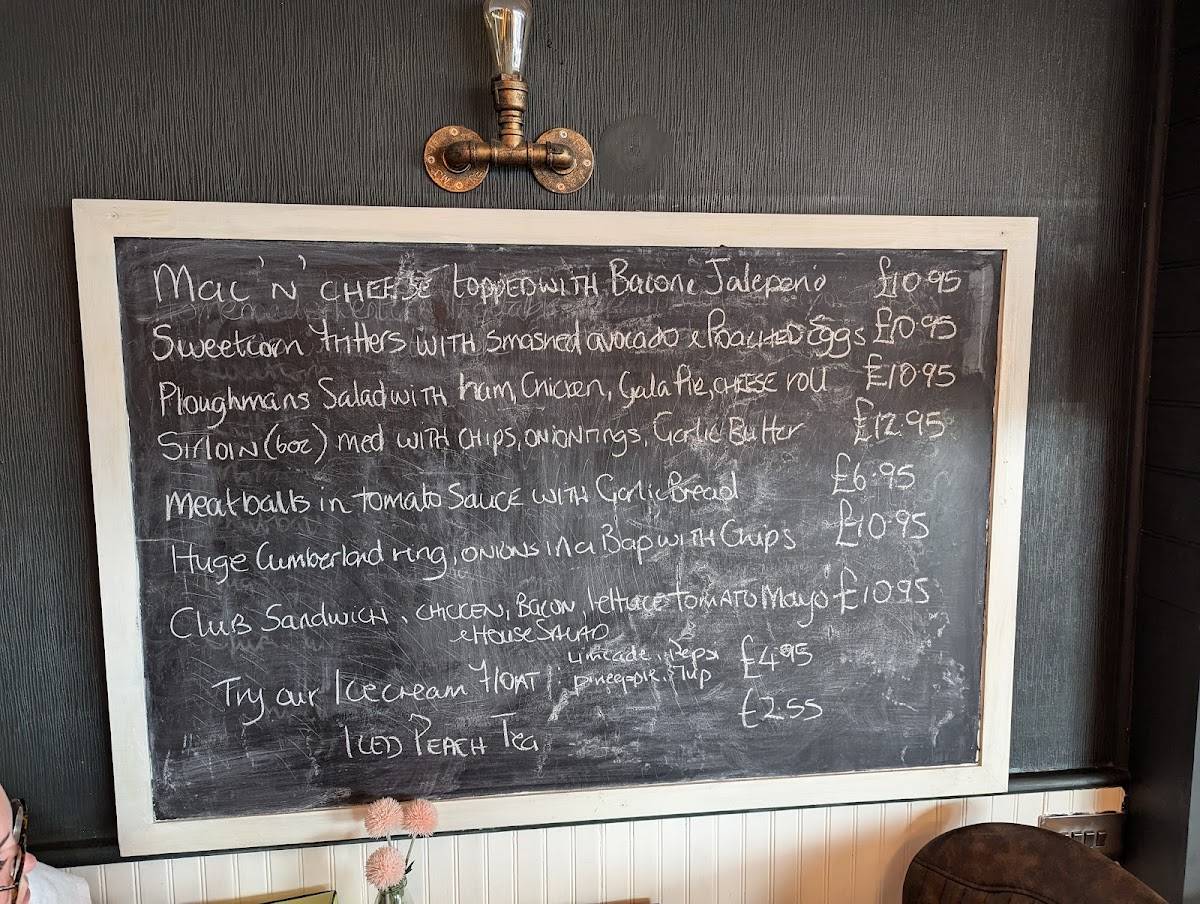 Mac 'N' CHEESE topped WITH Bacon & Jalepeno £10.95
Sweetcorn fritters WITH smashed avocado & POACHED Eggs £10.95
Ploughmans Salad WITH ham, Chicken, Gala Pie, CHEESE roll £10.95
Sirloin (6oz) med WITH CHIPS, ONION rings, Garlic Butter £12.95
Meatballs in tomato SAUCE WITH Garlic Bread £6.95
Huge Cumberland ring, ONIONS in a Bap WITH Chips £10.95
Club Sandwich, CHICKEN, BACON, lettuce TOMATO Mayo £10.95
& HOUSE SALAD
Limeade, Pepsi
Try our Icecream FLOAT : pineapple, 7up £4.95
ICED PEACH Tea £2.55